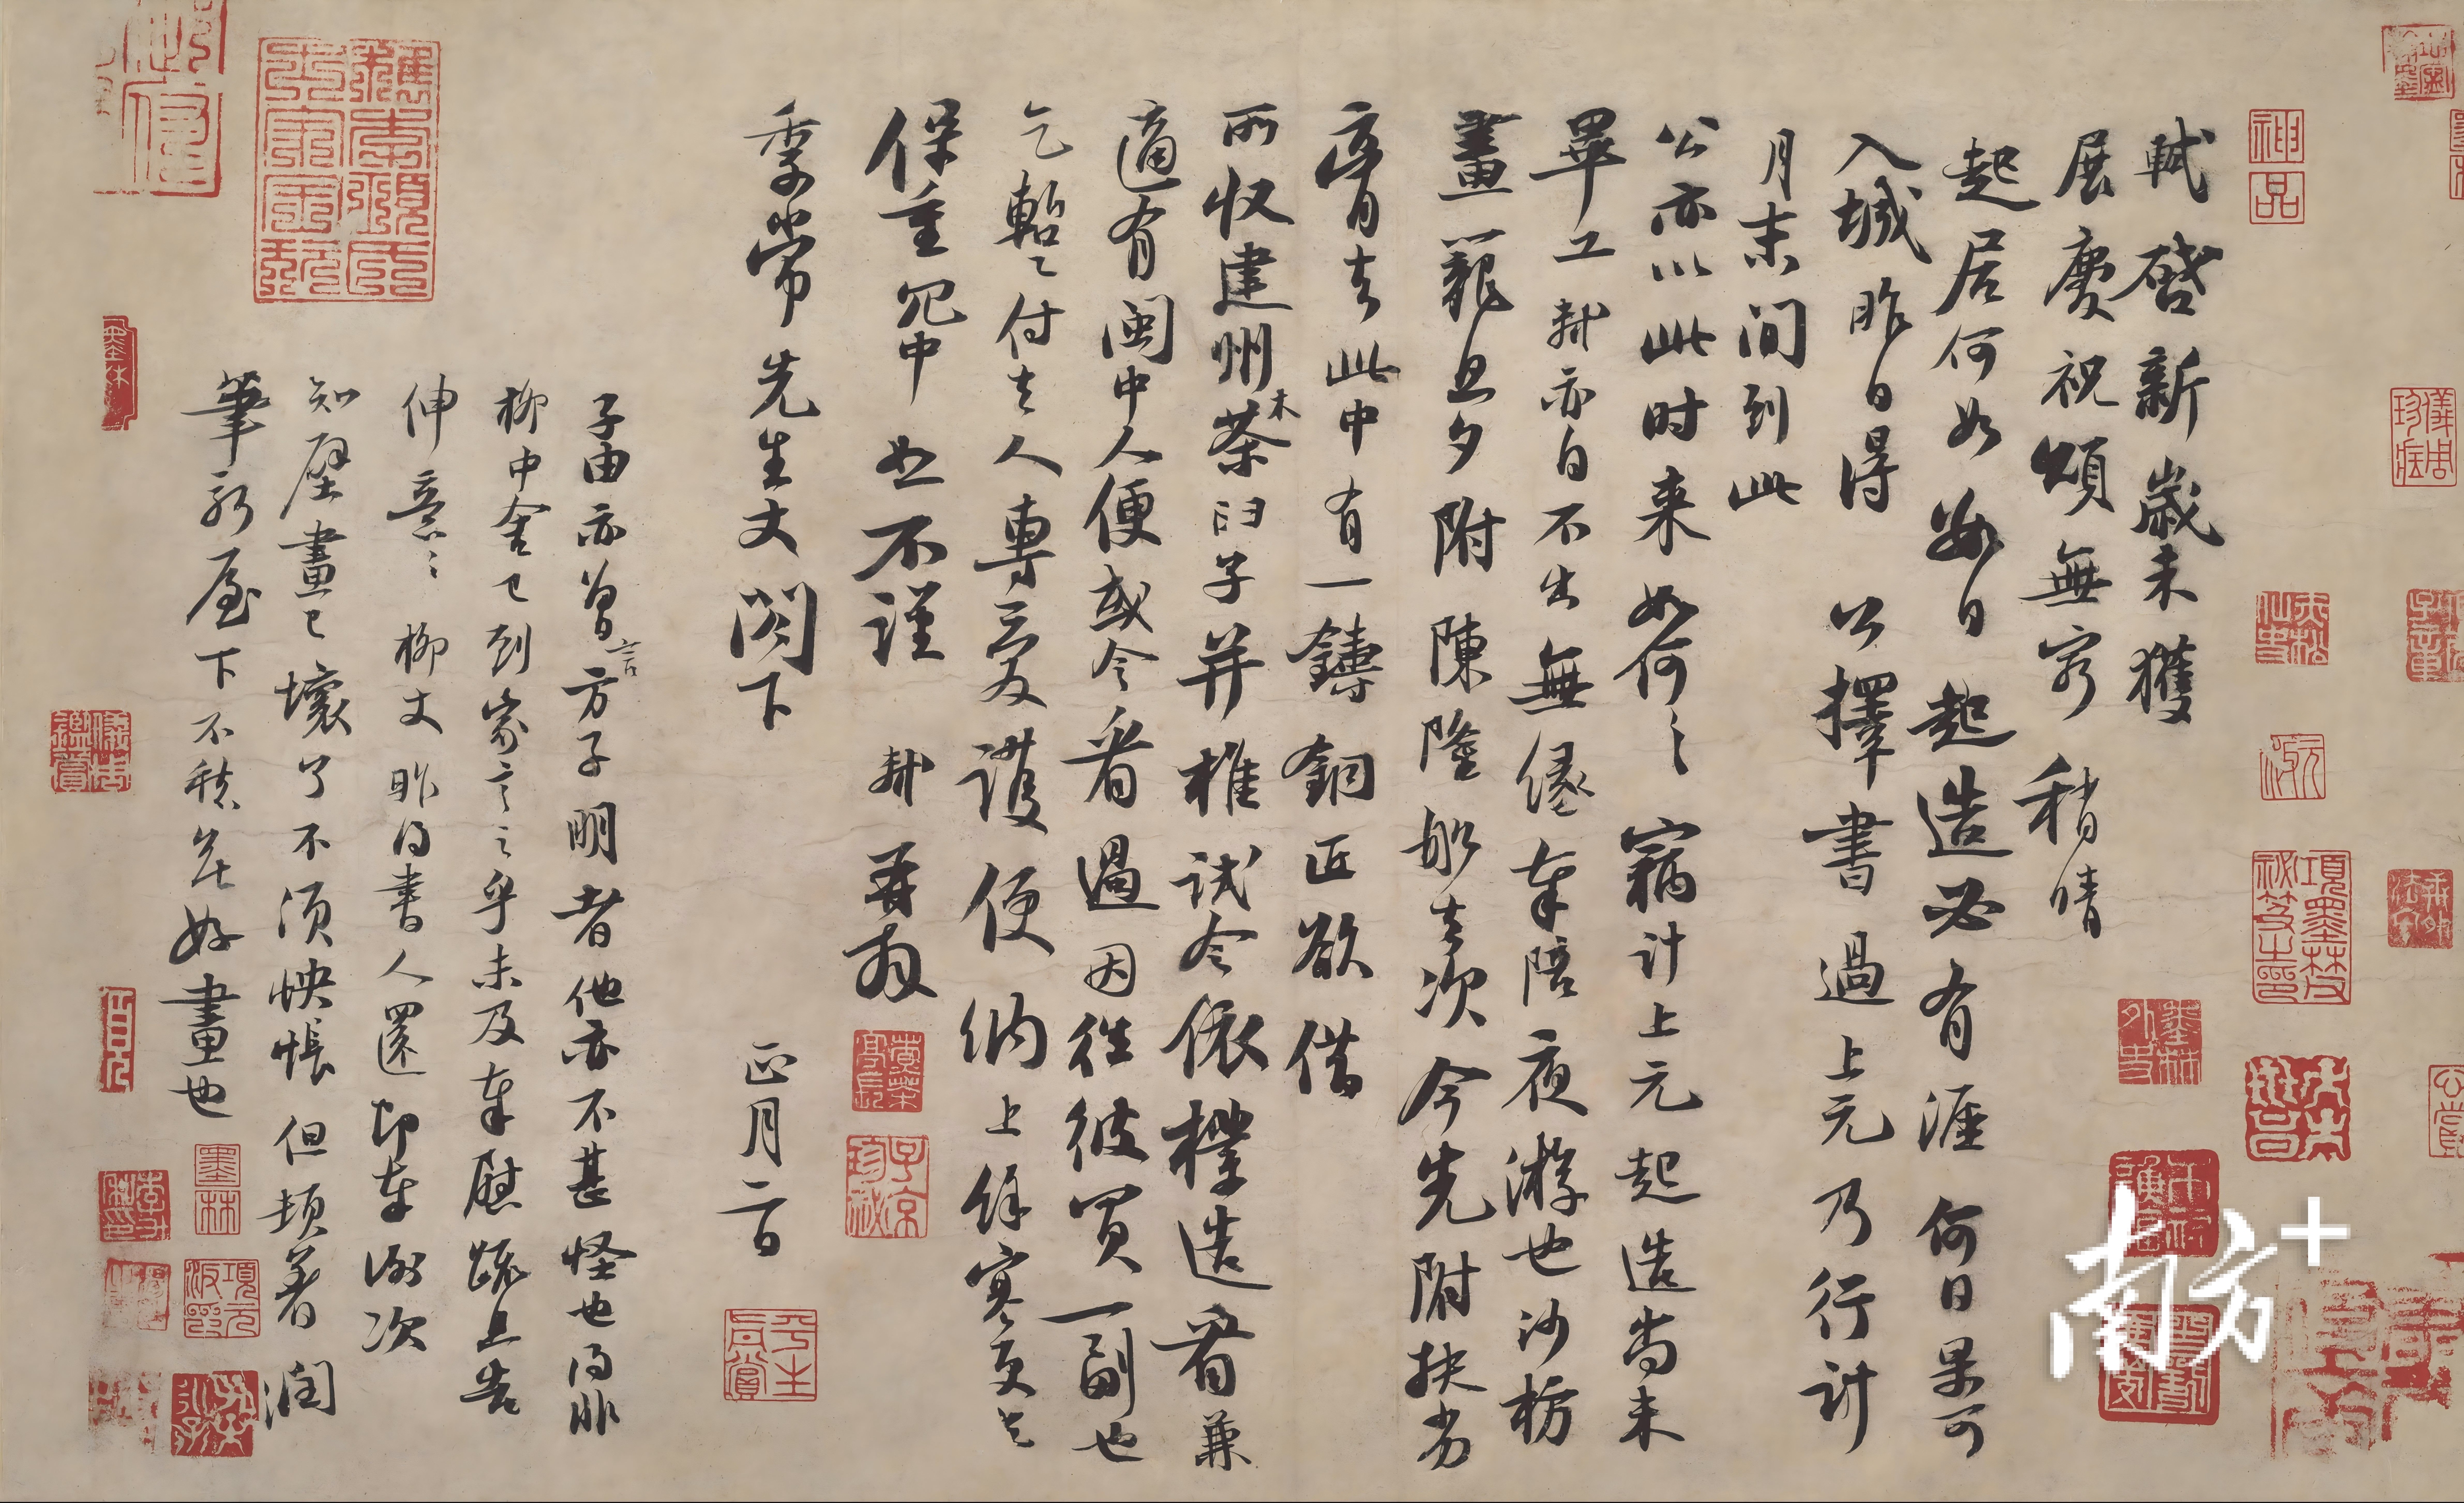 軾啓新歲未獲
展慶祝頌無窮稍晴
起居何如數日起造必有涯何日果可
入城昨日得公擇書過上元乃行計
月末間到此
公亦以此时来如何〻竊计上元起造尚未
畢工軾亦自不出無緣奉陪夜游也沙枋
畫籠旦夕附陳隆船去次今先附扶劣
膏去此中有一鑄銅匠欲借
所收建州木茶臼子并椎試令依樣造看兼
適有閩中人便或令看過因往彼買一副也
乞暫付去人專愛護便納上餘寒更乞
保重冗中恕不謹軾再拜
季常先生丈閤下
正月二日
子由亦曾言方子明者他亦不甚怪也得非
柳中舍已到家言之乎未及奉慰疏且告
伸意〻柳丈昨得書人還即奉謝次
知壁畫已壞了不須怏悵但頓著潤
筆新屋下不愁無好畫也
神品
墨林
項元汴印
子京珍秘
平生真賞
項墨林父秘笈之印
儀周珍藏
儀周鑑賞
南方+